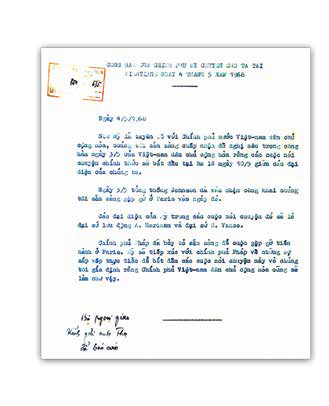 CÔNG HÀM CỦA CHÍNH PHỦ MỸ CHUYỂN CHO TA TẠI
NGÀY 4 THÁNG 5 NĂM 1968
Ngày 4/5/1968
Nước Mỹ đã tuyên bố với Chính phủ nước Việt-nam dân chủ
cộng hòa, chúng tôi sẵn sàng chấp nhận đề nghị nêu trong công
hàm ngày 3/5 của Việt-nam dân chủ cộng hòa rằng các cuộc nói
chuyện chính thức sẽ bắt đầu tại Ba lê ngày 10/5 giữa các đại diện
của chúng ta.
Ngày 3/5 tổng thống Johnson đã xác nhận công khai chúng
tôi sẵn sàng gặp gỡ ở Paris vào ngày đó.
Các đại diện của Mỹ trong các cuộc nói chuyện đó sẽ là
đại sứ lưu động A. Harriman và đại sứ C. Vance.
Chính phủ Pháp đã bày tỏ sẵn sàng để cuộc gặp gỡ tiến
hành ở Paris. Mỹ sẽ tiếp xúc với chính phủ Pháp về những sự
sắp xếp thực tiễn để bắt đầu các cuộc nói chuyện này và chúng
tôi giả định rằng Chính phủ Việt-nam dân chủ cộng hòa cũng sẽ
làm như vậy.
Bộ ngoại giao
Kính gửi anh Thọ
để báo cáo